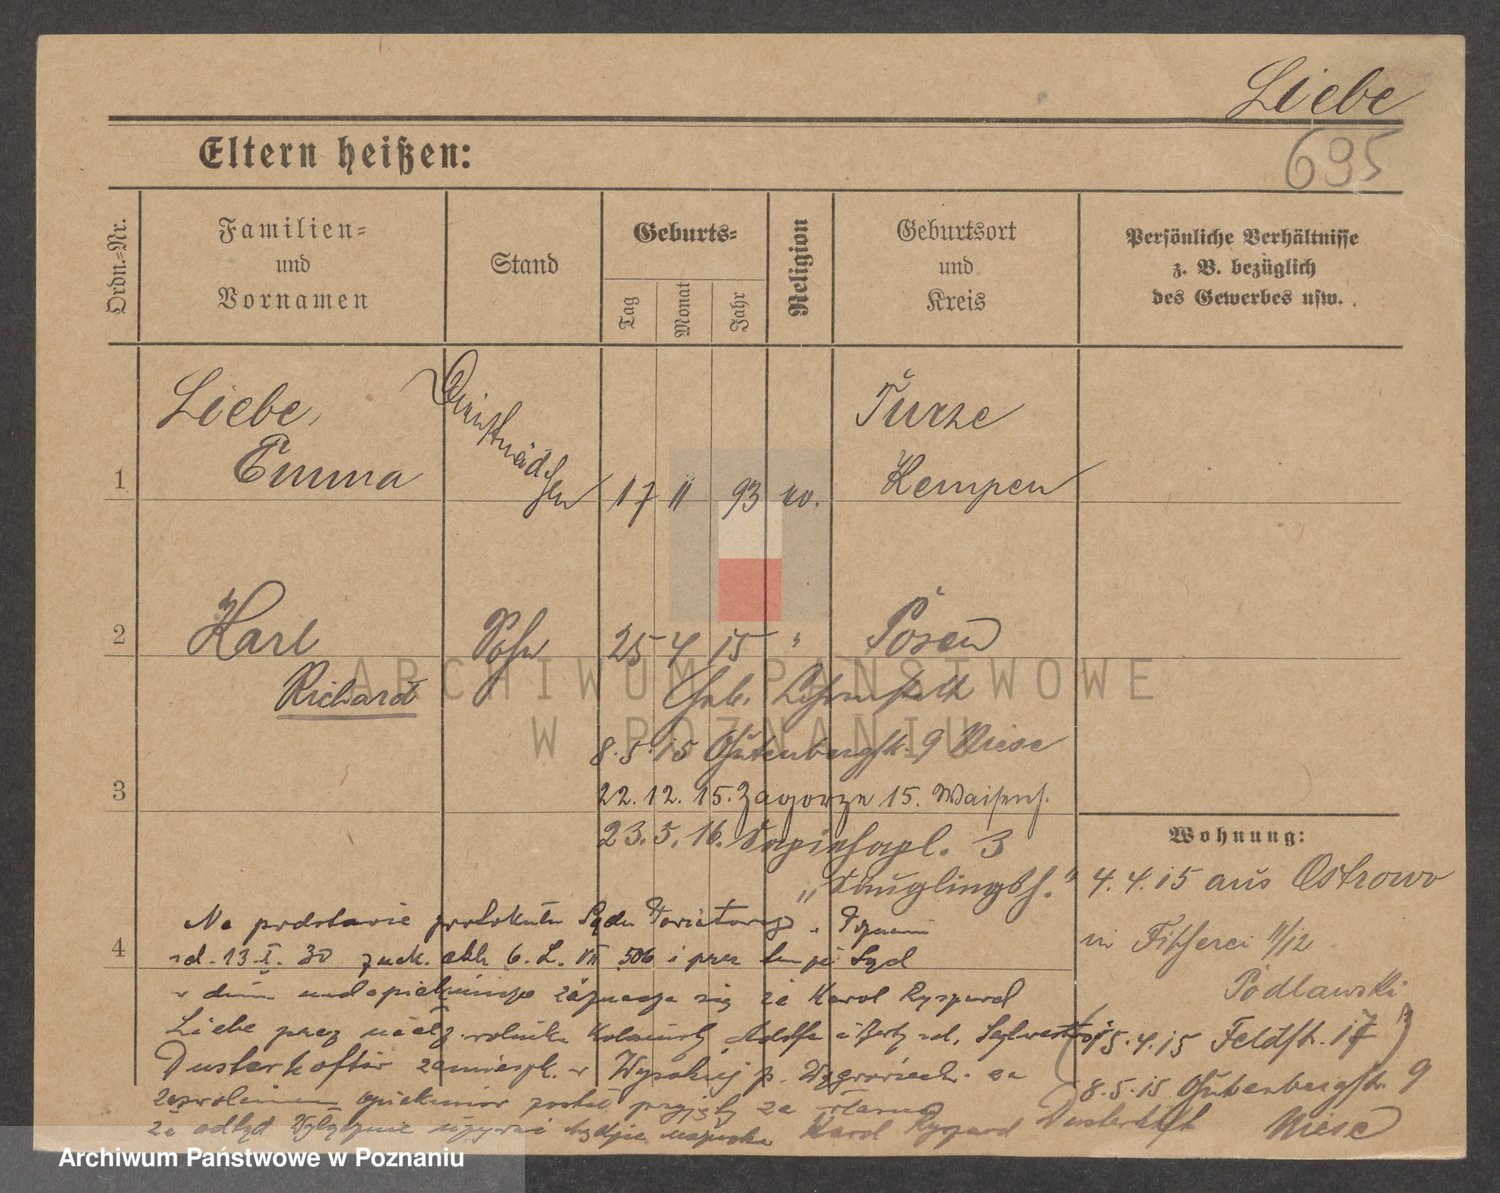 Liebe
695
Eltern heißen:
Ordn.-Nr.
Familien-
und
Vornamen
Stand
Geburts-
Tag
Monat
Jahr
Religion
Geburtsort
und
Kreis
Persönliche Verhältnisse
z. B. bezüglich
des Gewerbes usw.
1
Liebe,
Emma
Dienstmädchen
17 11 93
Turze
Kempen
2
Karl
Richard
Sohn
25 4 15 "
Posen
Geb.
8.5.15 Gutenbergstr. 9 Niese
3
22.12.15. Zagorze 15. Waisenh.
23.5.16. Sapiehapl. 3
„Säuglingsh."
Wohnung:
4.4.15 aus Ostrowo
in Fischerei 11/12
Podlawski
15.4.15 Feldstr. 17
8.5.15 Gutenbergstr. 9
Niese
4
Na podstawie protokułu Sądu Powiatowego w Poznaniu
z d. 13.I.30 znak. akt 6. L. VII 506 i przez tenże Sąd
w dniu zaznacza się że Karol Ryszard
Liebe przez rolnika Adolfa
Dusterhoftów zamieszk. w Wysokiej p. Wągrowiec
został przyjęty za
że odtąd wyłącznie używać będzie nazwiska Karol Ryszard Dusterhöft
ARCHIWUM PAŃSTWOWE
W POZNANIU
Archiwum Państwowe w Poznaniu